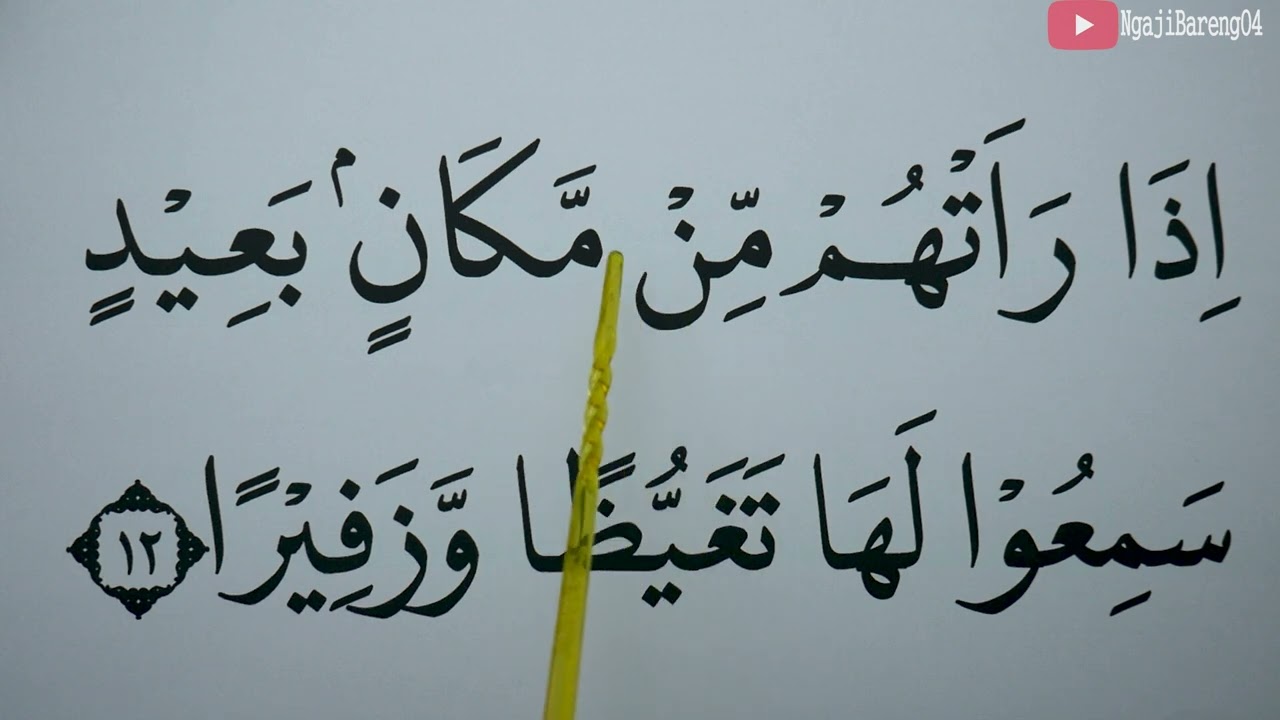 NgajiBareng04
اِذَا رَاَتْهُمْ مِّنْ مَّكَانٍۢ بَعِيْدٍ
سَمِعُوْا لَهَا تَغَيُّظًا وَّزَفِيْرًا ١٢